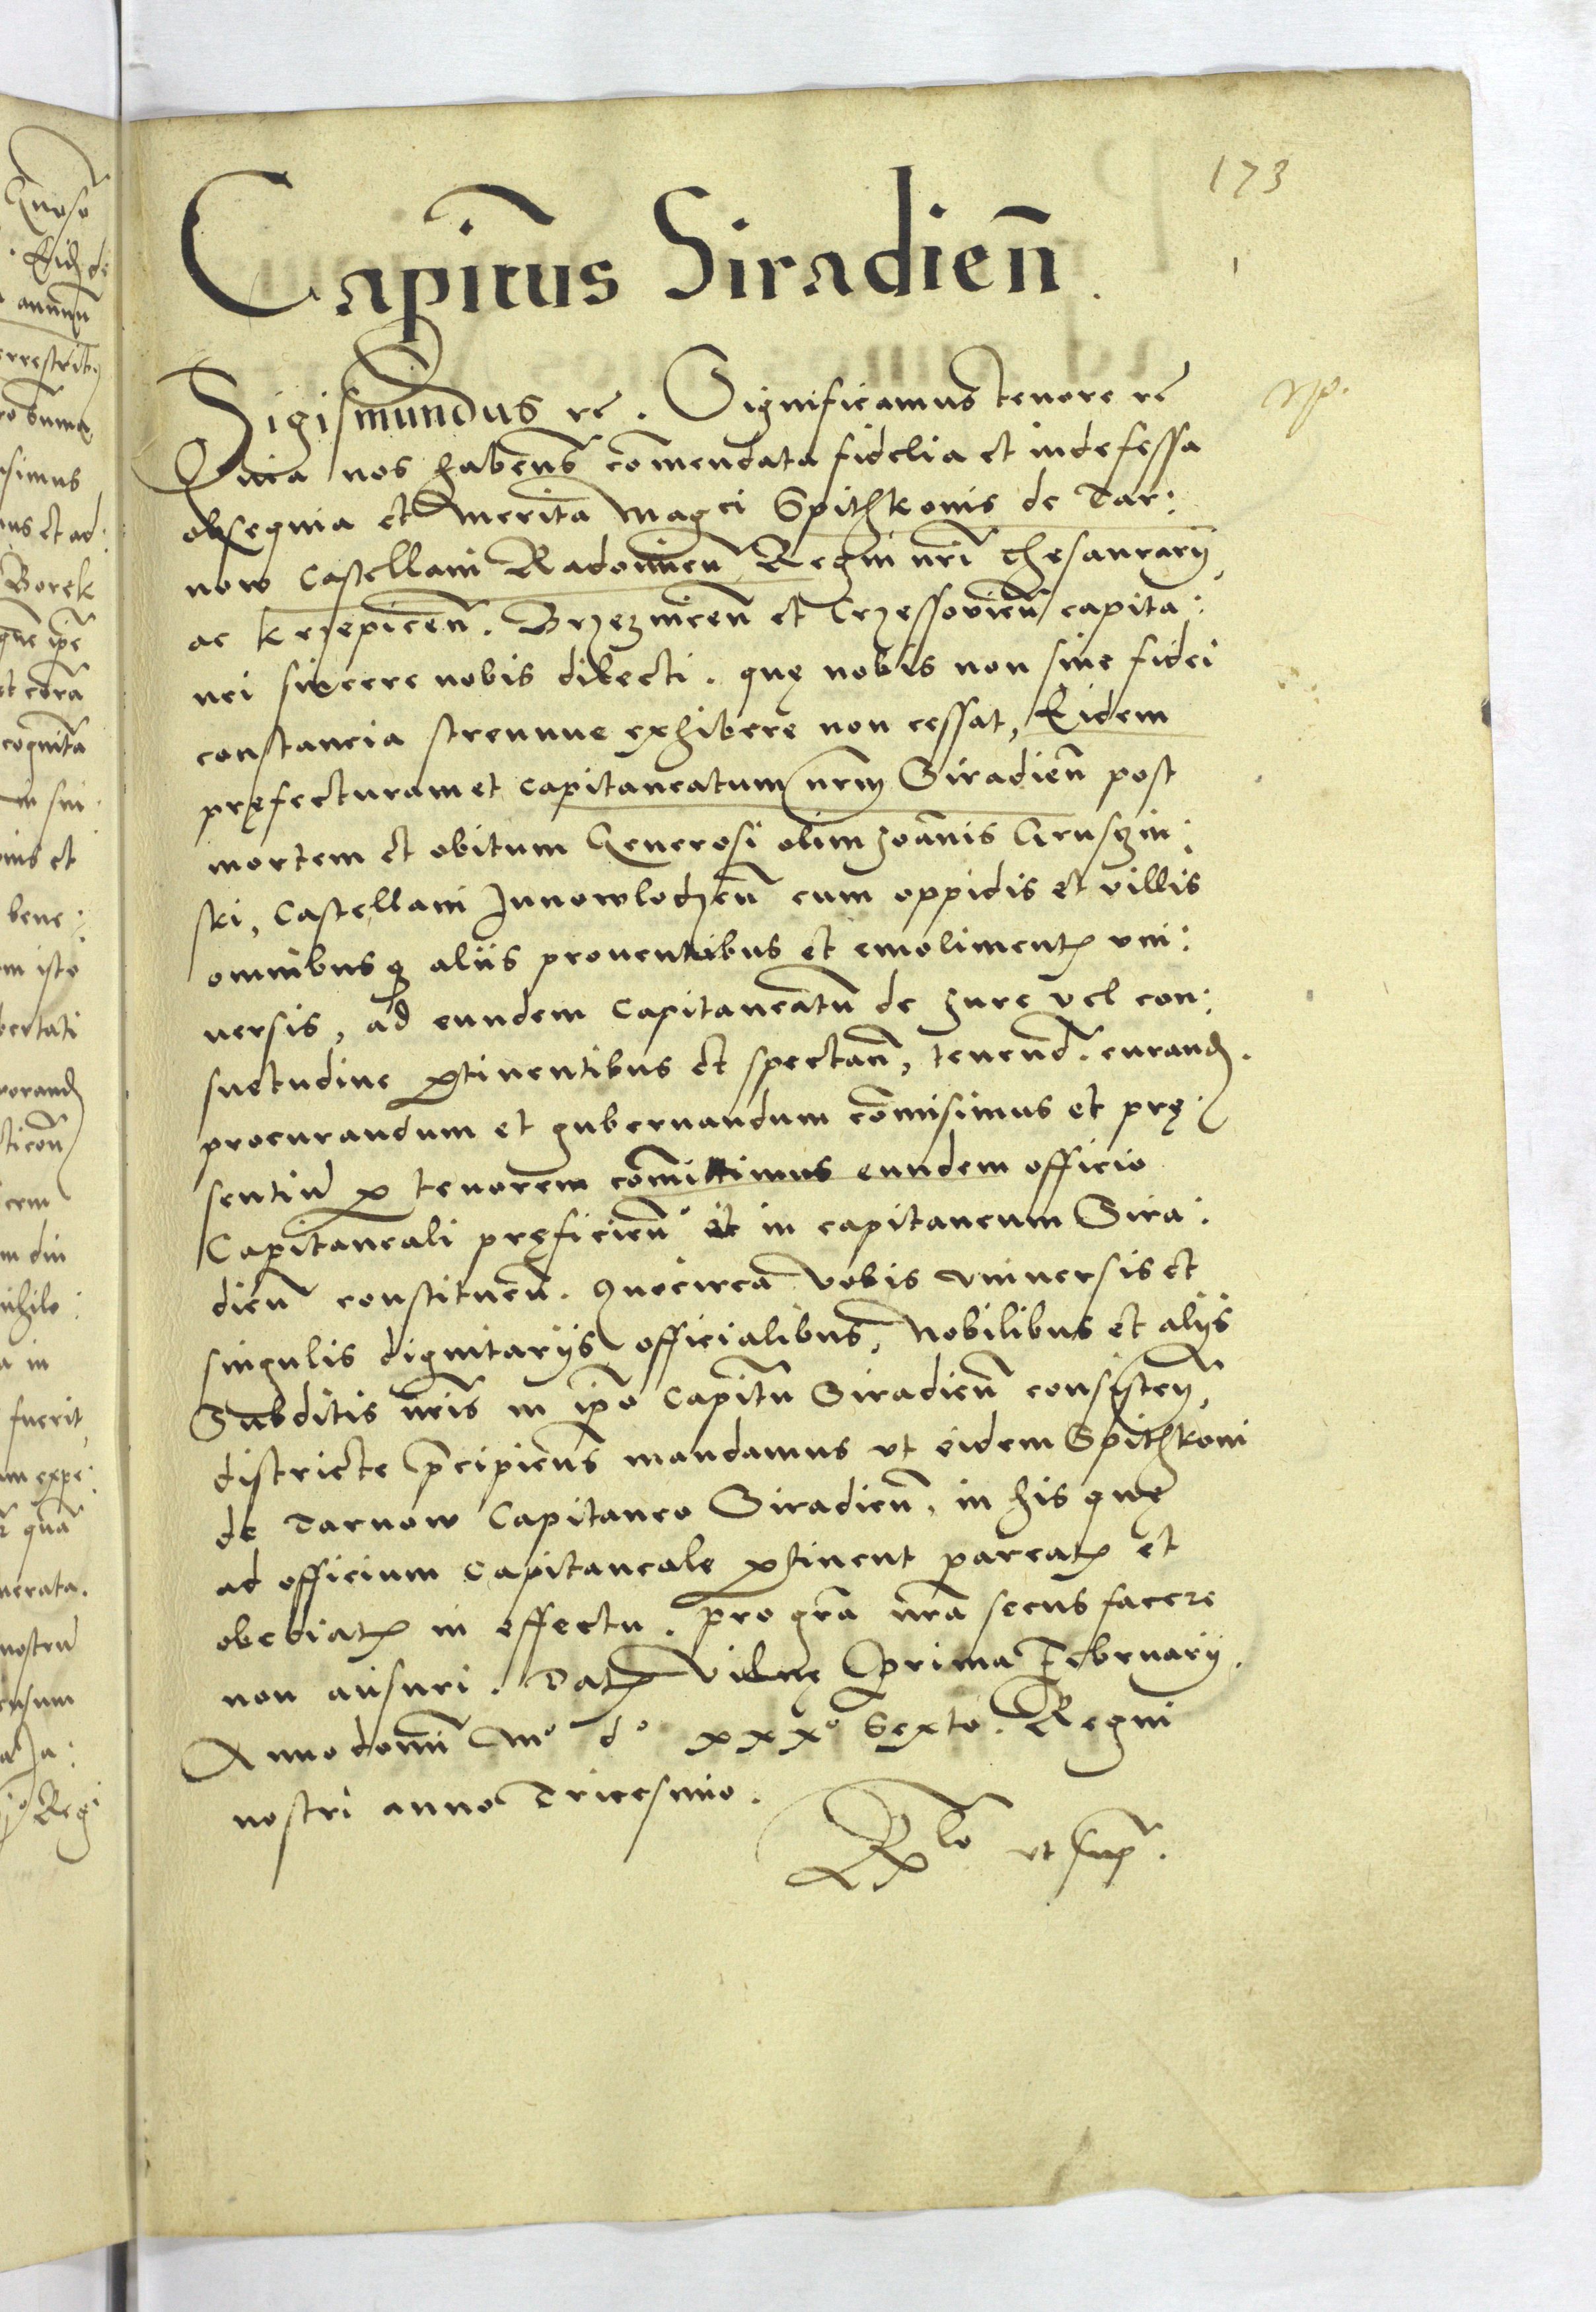 173
Capit̄us Siradien̄
Sigismundus rc̄. Significamus tenore rc̄
Quia nos haben̄s com̄endata fidelia et indefessa
obsequia et merita Mag̃ci Spithkonis de Tar:
now Castellani Radomien̄ Regni nr̄i Thesaurarij
ac krzepicen̄. Brzeznicen̄ et Crzessovien̄ capita:
nei sincere nobis dilecti. quę nobis non sine fidei
constancia strennue exhibere non cessat, Eidem
pręfecturam et Capitaneatum nr̄m Siradien̄ post
mortem et obitum Generosi olim Joan̄is Gruszin:
ski, Castellani Junowlodzen̄ cum oppidis et villis
omnibusq̨ aliis prouentibus et emolimentꝭ vni:
uersis, ad eundem Capitaneatū de Jure vel con:
suetudine ꝑtinentibus et spectan̄, tenend̄. curand̄.
procurandum et gubernandum com̄isimus et pрę:
sentiū ꝑ tenorem com̄ittimus eundem officio
Capitaneali pręficien̄ et in capitaneum Sira:
dien̄ constituen̄. Quocirca vobis vniuersis et
singulis dignitarijs officialibus, Nobilibus et alijs
Subditis nr̄is in ip̄o Capit̄u Siradien̄ consisten̄,
districte p̄cipien̄s mandamus vt eidem Spithkoni
de Tarnow Capitaneo Siradien̄, in his quę
ad officium Capitaneale ꝑtinent pareatꝭ et
obediatꝭ in effectu. pro gr̄a nr̄a secus facere
non ausuri. Datꝭ Vilnę prima Februarij.
Anno domī Mº dº xxxº Sexto. Regni
nostri anno Tricesimo.
Rlo vt sup̄.